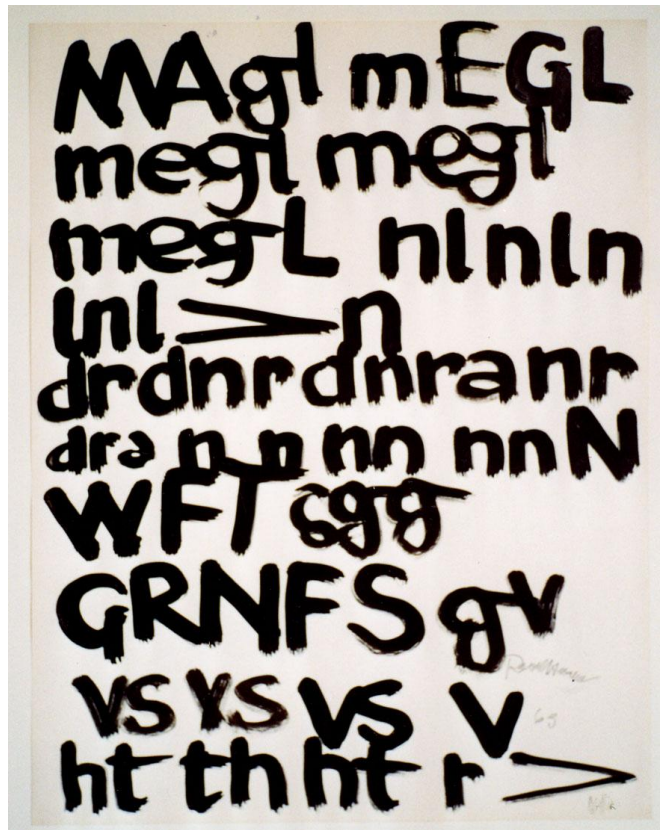 MAgl mEGL
megl megl
megL nlnln
lnl > n
drdnrdnranr
dra n n nn nnN
WFT sgg
GRNFS gv
vs ys vs v
69
ht th ht r >